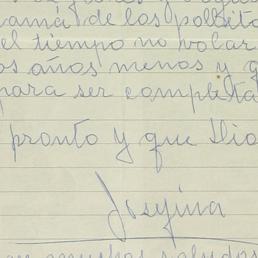 mamá de los pollito
el tiempo no volar
os años menos y q
para ser completa
pronto y que Dio
Josefina
muchos saludos